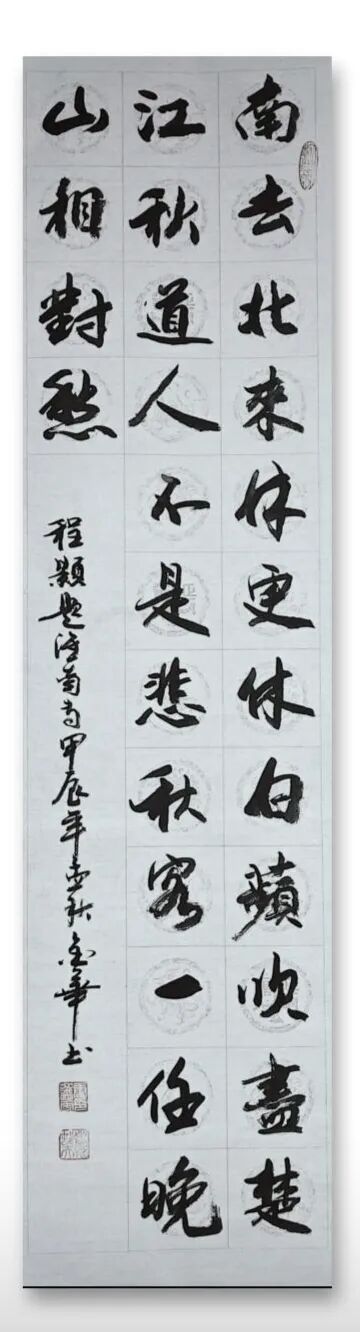 南去北來休更休白蘋吹盡楚
江秋道人不是悲秋客一任晚
山相對愁
程顥題淮南寺甲辰年孟秋金華书